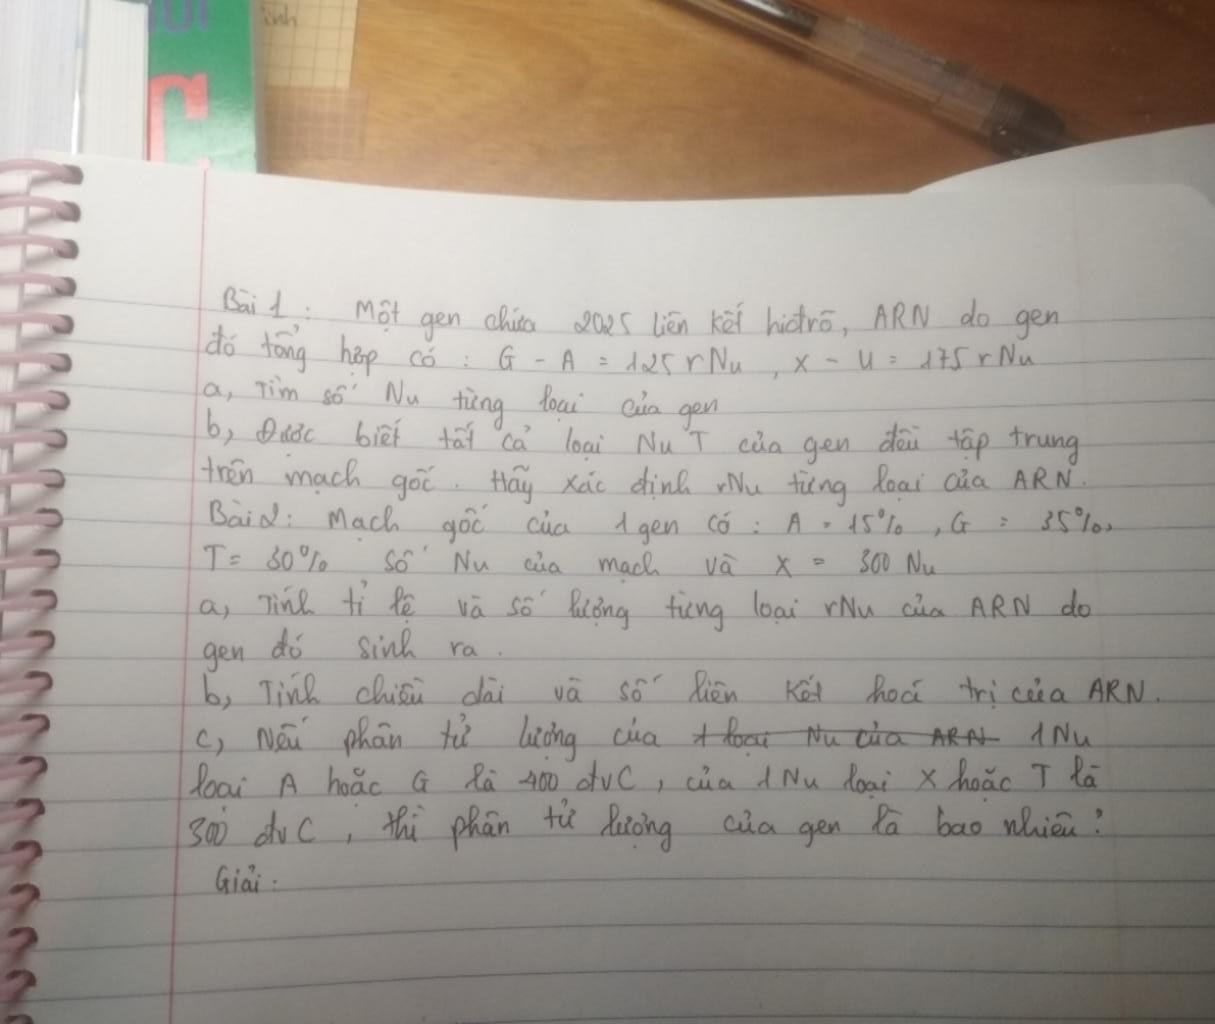 inh
C
Bài 1 : Một gen chứa 2025 liên kết hiđrô, ARN do gen
đó tổng hợp có : G - A = 125 rNu , X - U = 175 rNu
a, Tìm số Nu từng loại của gen
b, Được biết tất cả loại Nu T của gen đều tập trung
trên mạch gốc . Hãy xác định rNu từng loại của ARN.
Bài 2 : Mạch gốc của 1 gen có : A = 15% , G = 35%,
T = 30% số Nu của mạch và X = 300 Nu
a, Tính tỉ lệ và số lượng từng loại rNu của ARN do
gen đó sinh ra .
b, Tính chiều dài và số liên kết hoá trị của ARN.
c, Nếu phân tử lượng của 1 loại Nu của ARN 1 Nu
loại A hoặc G là 400 đvC , của 1 Nu loại X hoặc T là
300 đvC , thì phân tử lượng của gen là bao nhiêu ?
Giải :